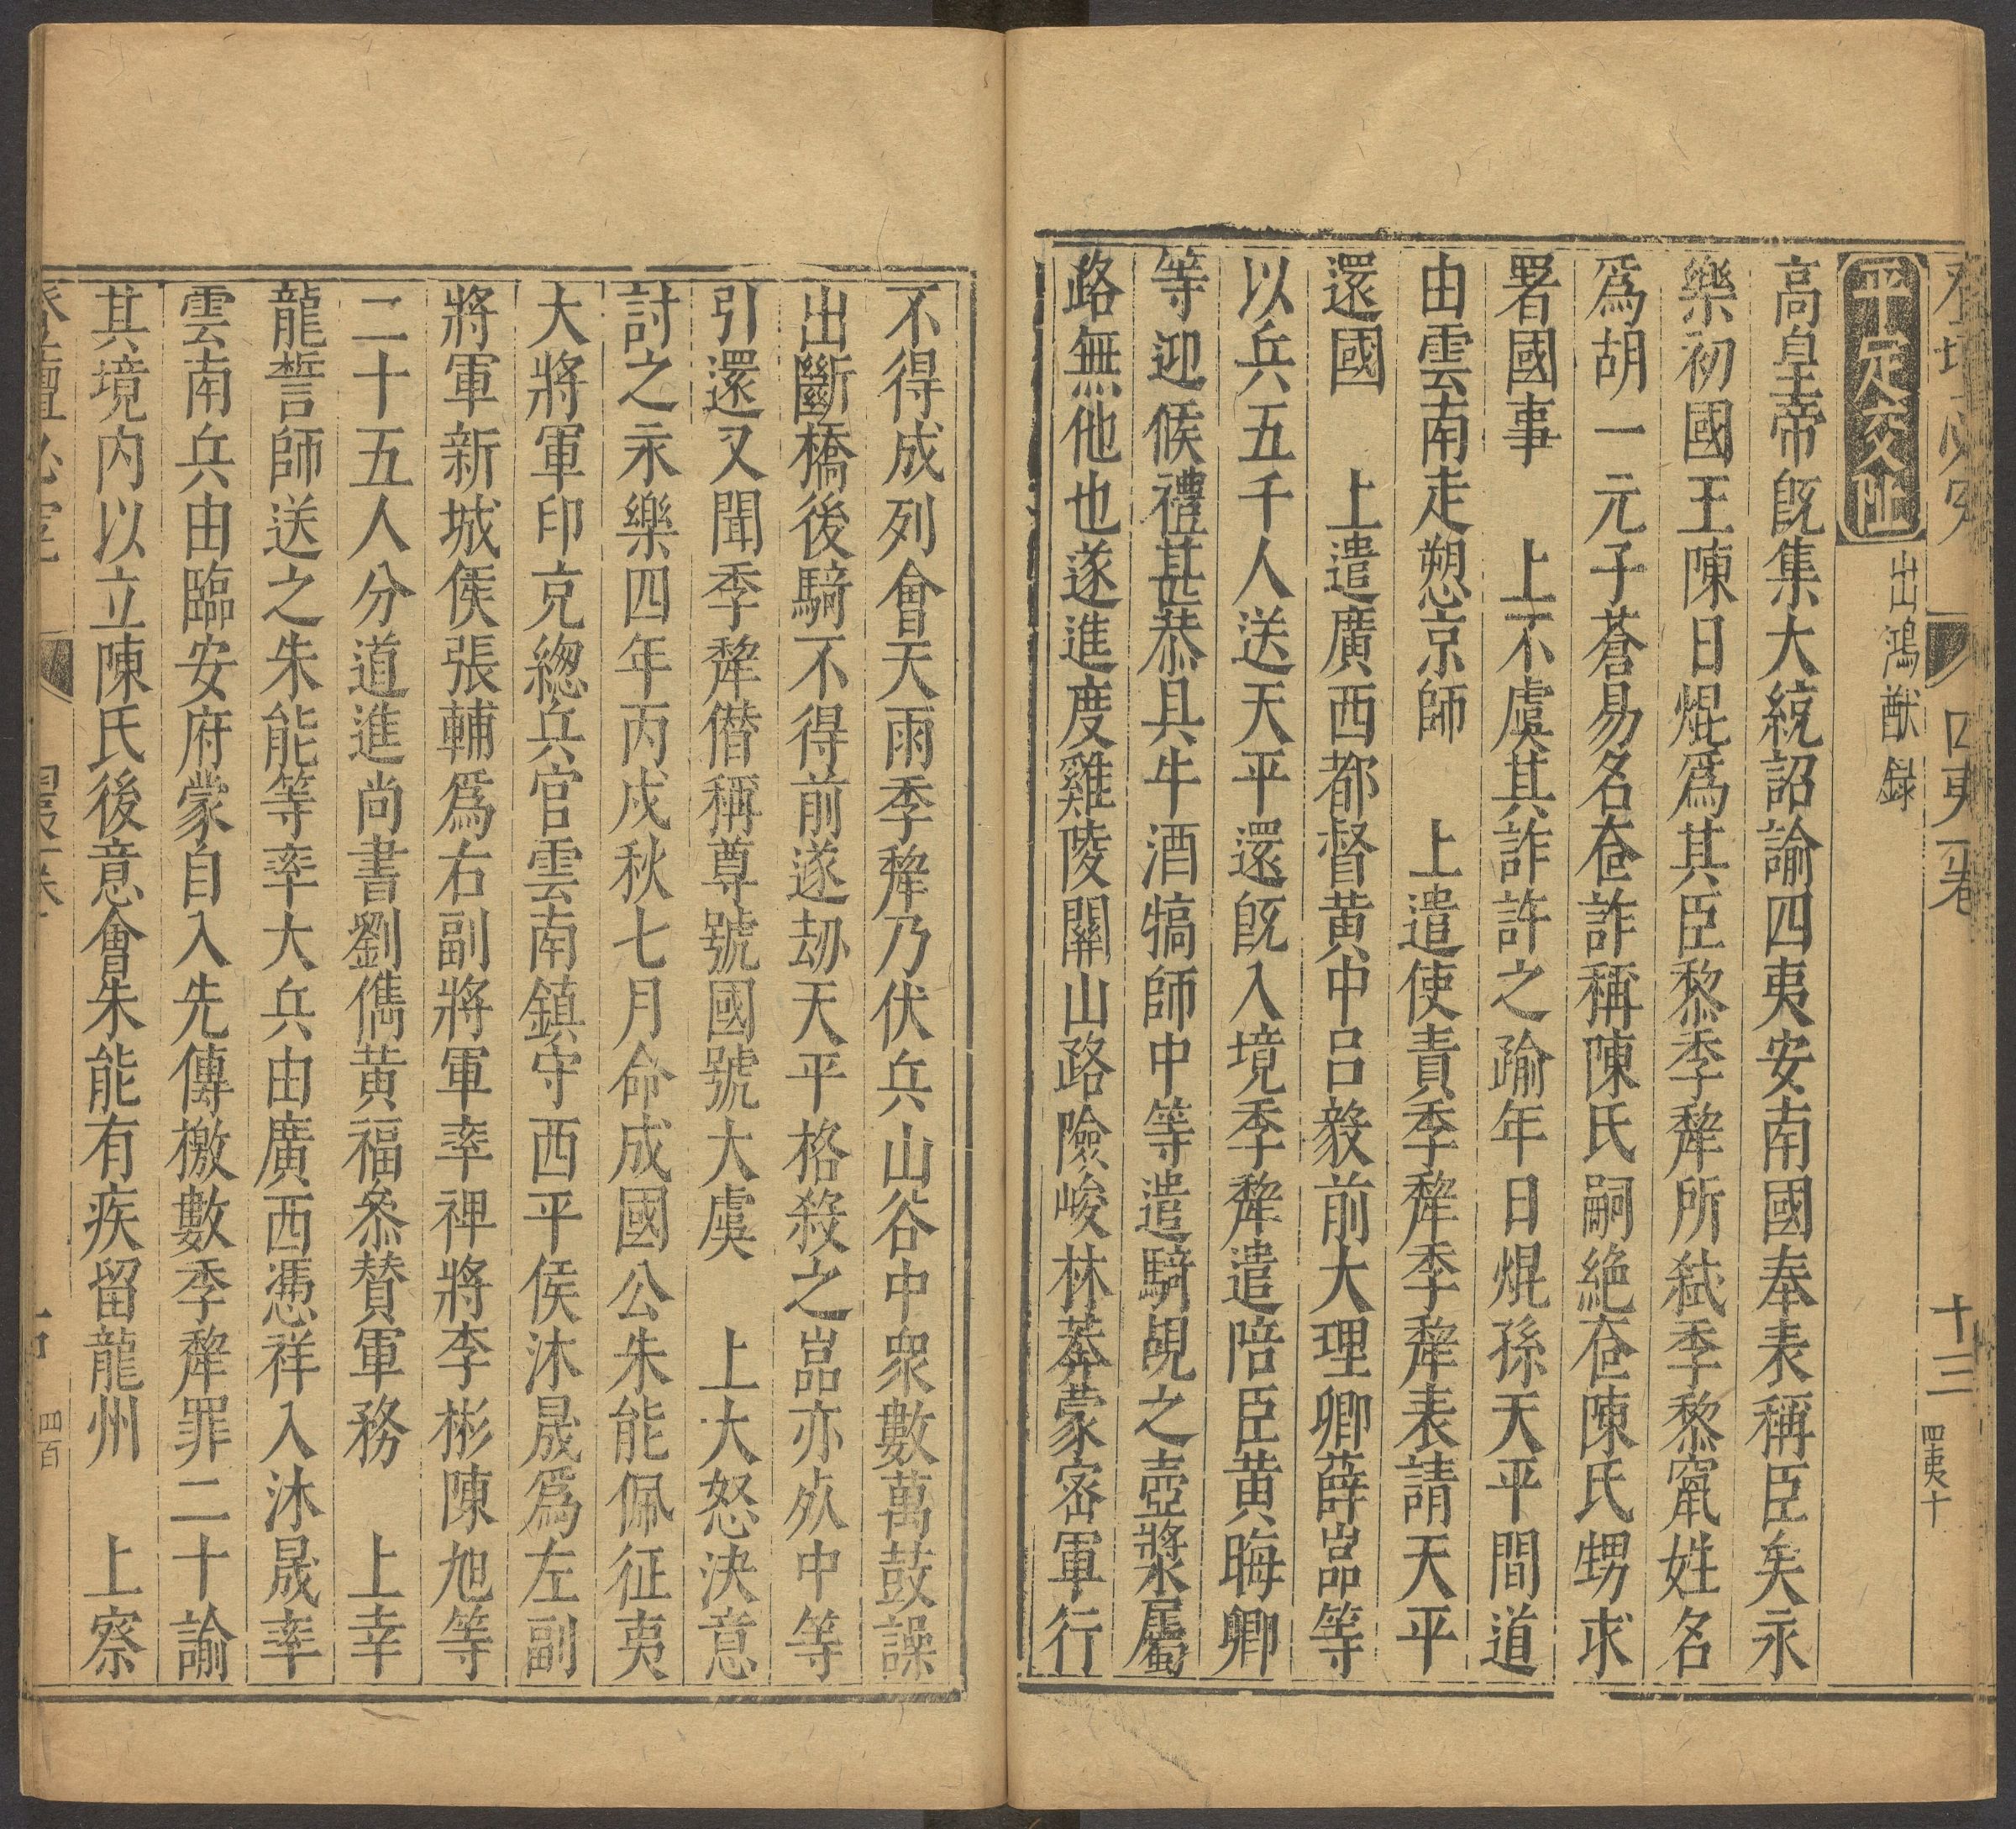 平定交阯 出鴻猷録
高皇帝旣集大統詔諭四夷安南國奉表稱臣矣永
樂初國王陳日焜爲其臣黎季犛所弑季黎竄姓名
爲胡一元子蒼易名𡗨詐稱陳氏嗣絶𡗨陳氏甥求
署國事 上不虞其詐許之踰年日焜孫天平間道
由雲南走愬京師 上遣使責季犛季犛表請天平
還國 上遣廣西都督黄中呂毅前大理卿薛嵓等
以兵五千人送天平還旣入境季犛遣陪臣黄晦卿
等迎候禮甚恭具牛酒犒師中等遣騎覘之壺漿屬
路無他也遂進度雞陵關山路險峻林莽蒙宻軍行
不得成列會天雨季犛乃伏兵山谷中衆數萬鼓譟
出斷橋後騎不得前遂刼天平格殺之嵓亦𣦸中等
引還又聞季犛僭稱尊號國號大虞 上大怒決意
討之永樂四年丙戍秋七月命成國公朱能佩征夷
大將軍印充緫兵官雲南鎮守西平侯沐晟爲左副
將軍新城侯張輔爲右副將軍率裨將李彬陳旭等
二十五人分道進尚書劉儁黄福叅賛軍務 上幸
龍誓師送之朱能等率大兵由廣西憑祥入沐晟率
雲南兵由臨安府蒙自入先傳檄數季犛罪二十諭
其境内以立陳氏後意會朱能有疾留龍州 上察
四夷一卷 十三 四夷十
四百